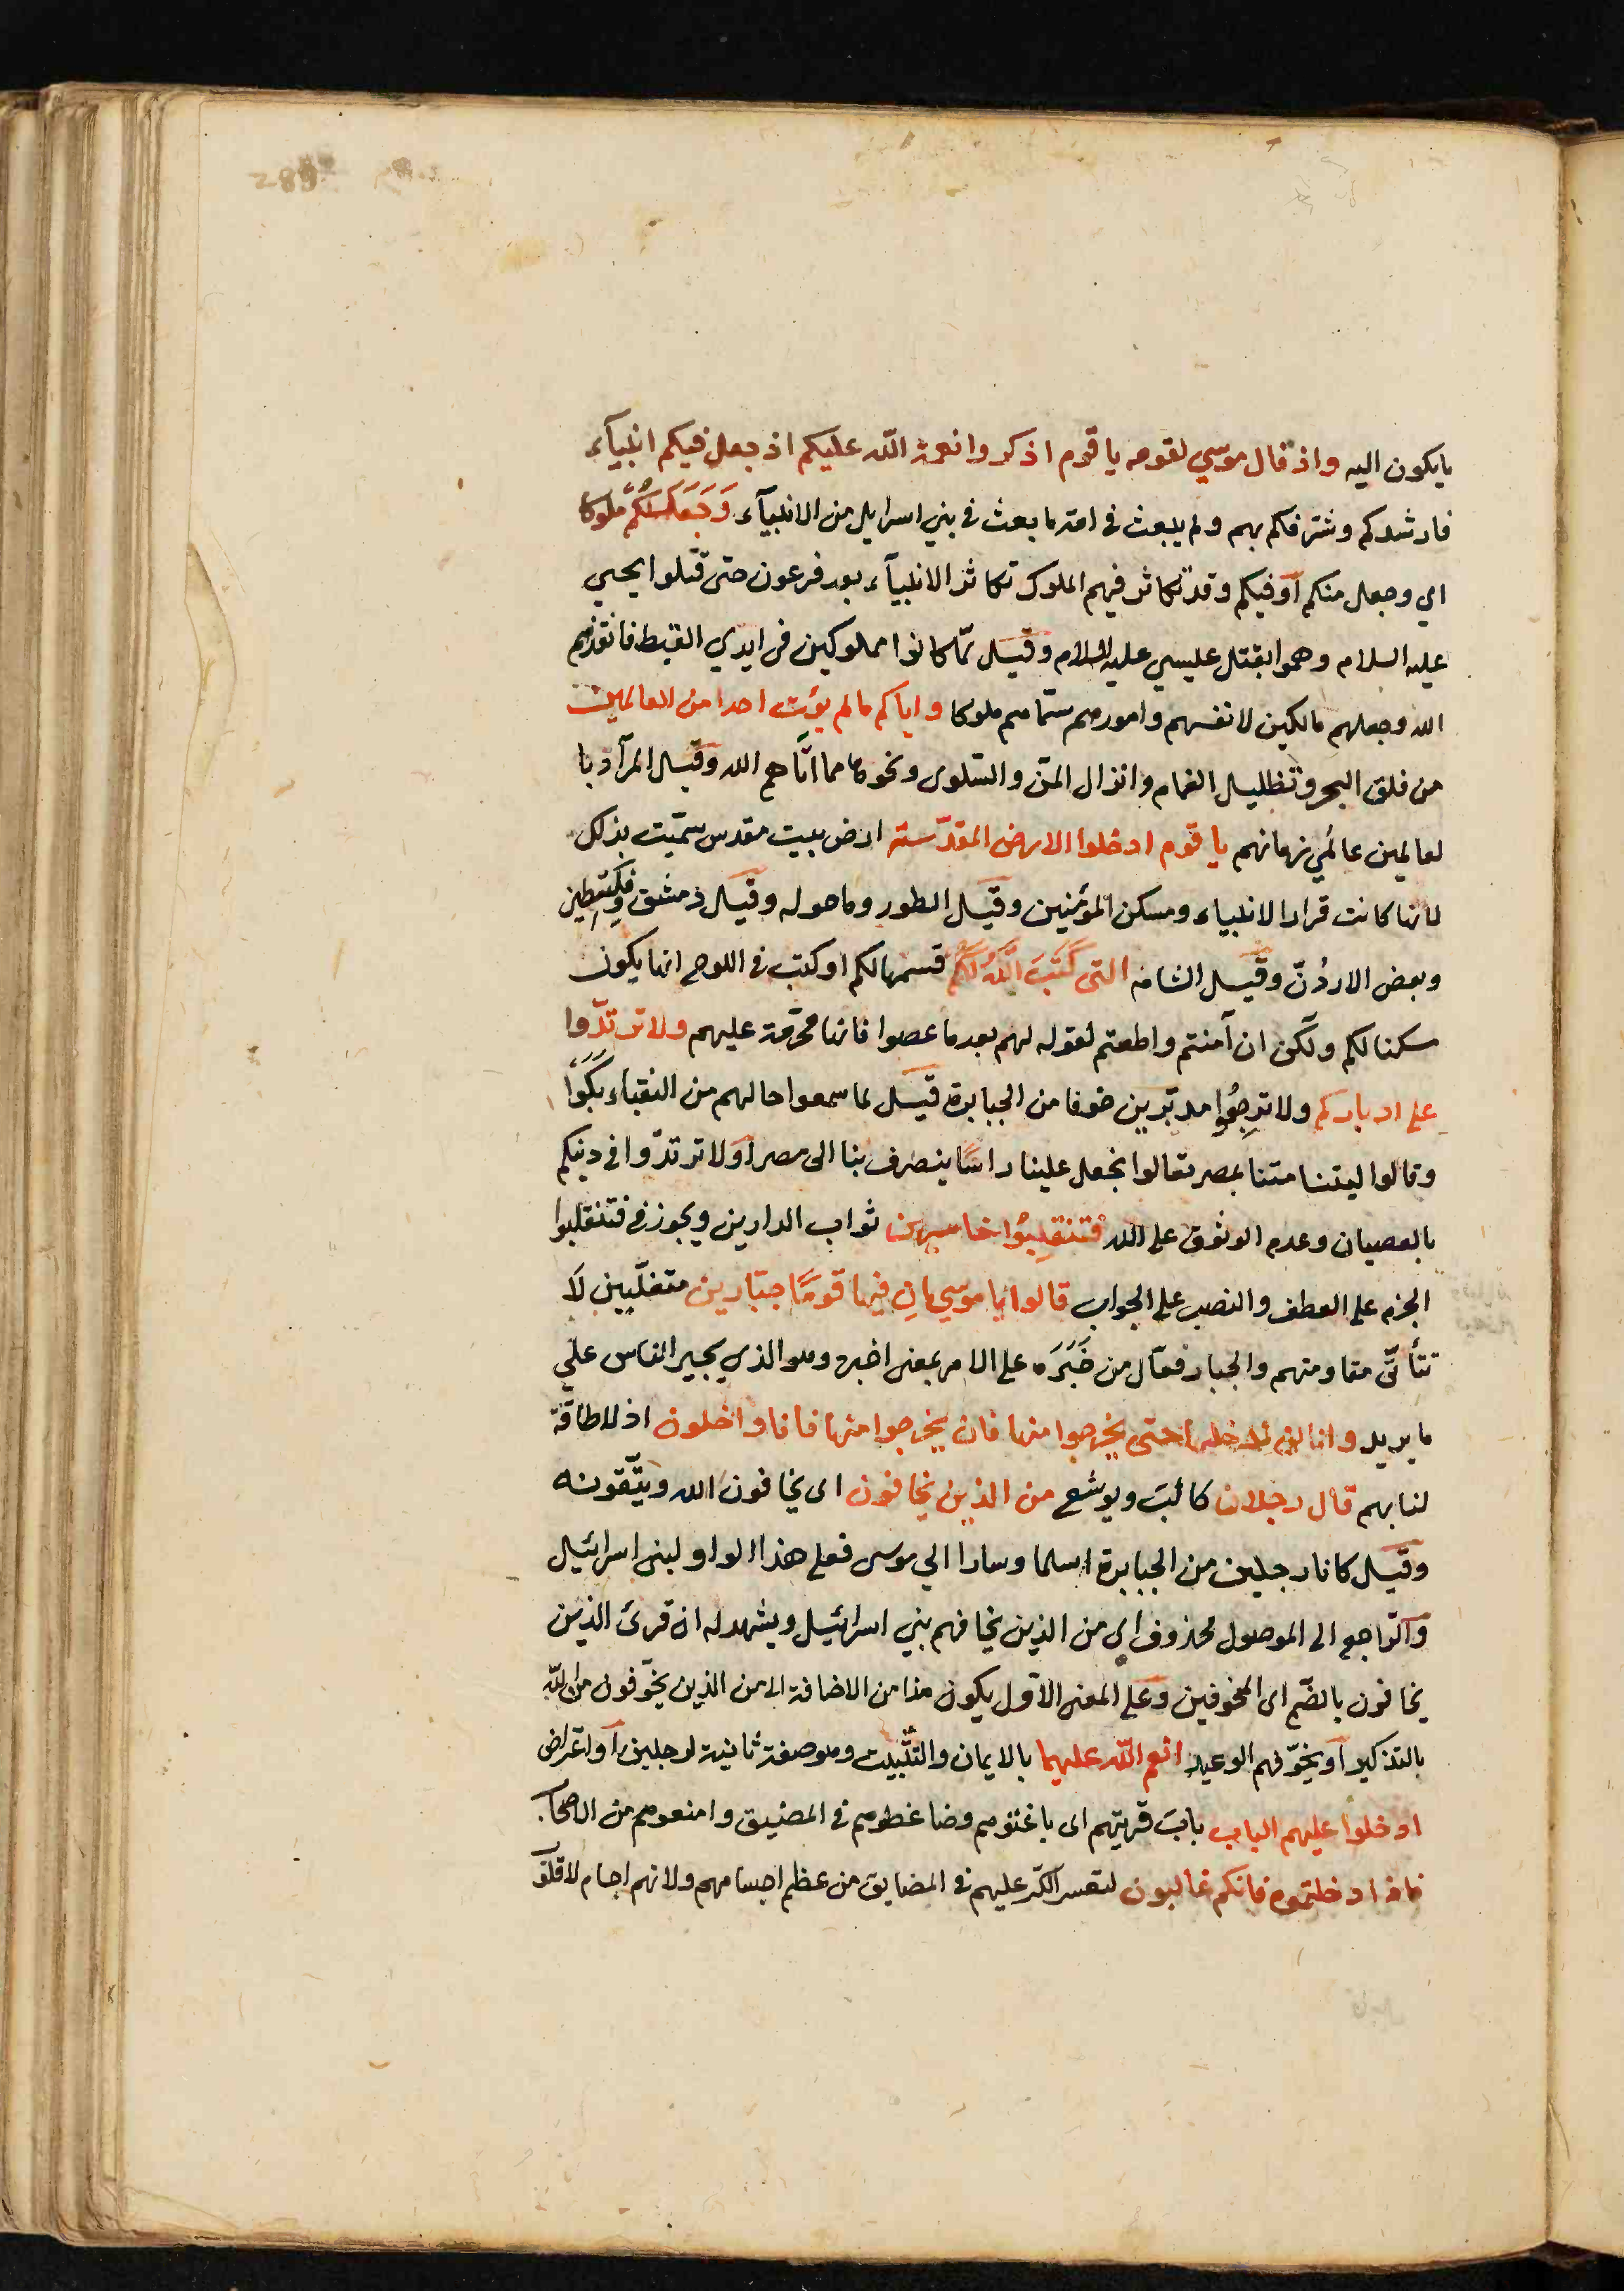 يايكون اليه واذ قال موسي لقومه يا قوم اذكروا نعمة الله عليكم اذ جعل فيكم انبيآء
فارشدكم وشرفكم بهم ولم يبعث في امة ما بعث في بني اسرايل من الانبيآء وَجَعَلَكُمْ مُلُوكا
اي وجعل منكم او فيكم وقد تكاثر فيهم الملوك تكاثر الانبيآء بعد فرعون حتى قتلوا يحيي
عليه السلام وهموا بقتل عليسي عليه السلام وقيل لمّا كانوا مملوكين في ايدي القبط فانقذهم
الله وجعلهم مالكين لانفسهم وامورهم سمّاهم ملوكا واياكم مالم يوت احدا من العالمين
من فلق البحر وتظليل الغمام وانزال المنّ والسّلوى ونحوها مما اتاهم الله وقيل المراد با
لعالمين عالمي زمانهم يا قوم ادخلوا الارض المقدّسة ارض بيت مقدس سمّيت بذلك
لانها كانت قرار الانبياء ومسكن المؤمنين وقيل الطور وما حوله وقيل دمشق وفلسطين
وبعض الاردُنّ وقيل الشام التى كَتَبَ اللّهُ لَكُمْ قسمها لكم او كتب في اللوح انها يكون
سكنا لكم ولكن ان آمنتم واطعتم لقوله لهم بعد ما عصوا فانها محرّمة عليهم ولا ترتدّوا
على ادباركم ولا ترجِعُوا مدبرين خوفا من الجبابرة قيل لما سمعوا حالهم من النقباء بَكَوْا
وقالوا ليتنا متنا بمصر تعالوا نجعل علينا راسًا ينصرف بنا الى مصر او لا ترتدّوا في دينكم
بالعصيان وعدم الوثوق على الله فتنقلِبُوا خاسرين ثواب الدارين ويجوز في فتنقلبوا
الجزم على العطف والنصب على الجواب قالوا يا موسي اِن فيها قومًا جبّارين متغلّبين لا
تتأتّى مقاومتهم والجبار فعّال من جَبَرَه على الامر بمعنى اجبره وهو الذي يجبر الناس علي
ما يريد وانا لن ندخلها حتى يخرجوا منها فان يخرجوا منها فانا داخلون اذ لا طاقة
لنا بهم قال رجلان كالب ويوشع من الذين يخافون اى يخافون الله ويتّقونه
وقيل كانا رجلين من الجبابرة اسلما وسارا الي موسى فعلى هذا الواو لبنى اسرائيل
والرّاجع الى الموصول محذوف اى من الذين يخافهم بني اسرائيل ويشهد له ان قرئ الذين
يخافون بالضّم اى المخوفين وعلى المعنى الاوّل يكون هذا من الاضافة اى من الذين يخوّفون من الله
بالتذكير او يخوّفهم الوعيد انعم الله عليهما بالايمان والتثبيت وهو صفة ثانية لرجلين او اعتراض
ادخلوا عليهم الباب باب قريتهم اى باغتوهم وضاغطوهم في المضيق وامنعوهم من الاصحار
فاذا دخلتموه فانكم غالبون لتعسر الكرّ عليهم في المضايق من عظم اجسامهم ولانهم اجسام لا قلوب